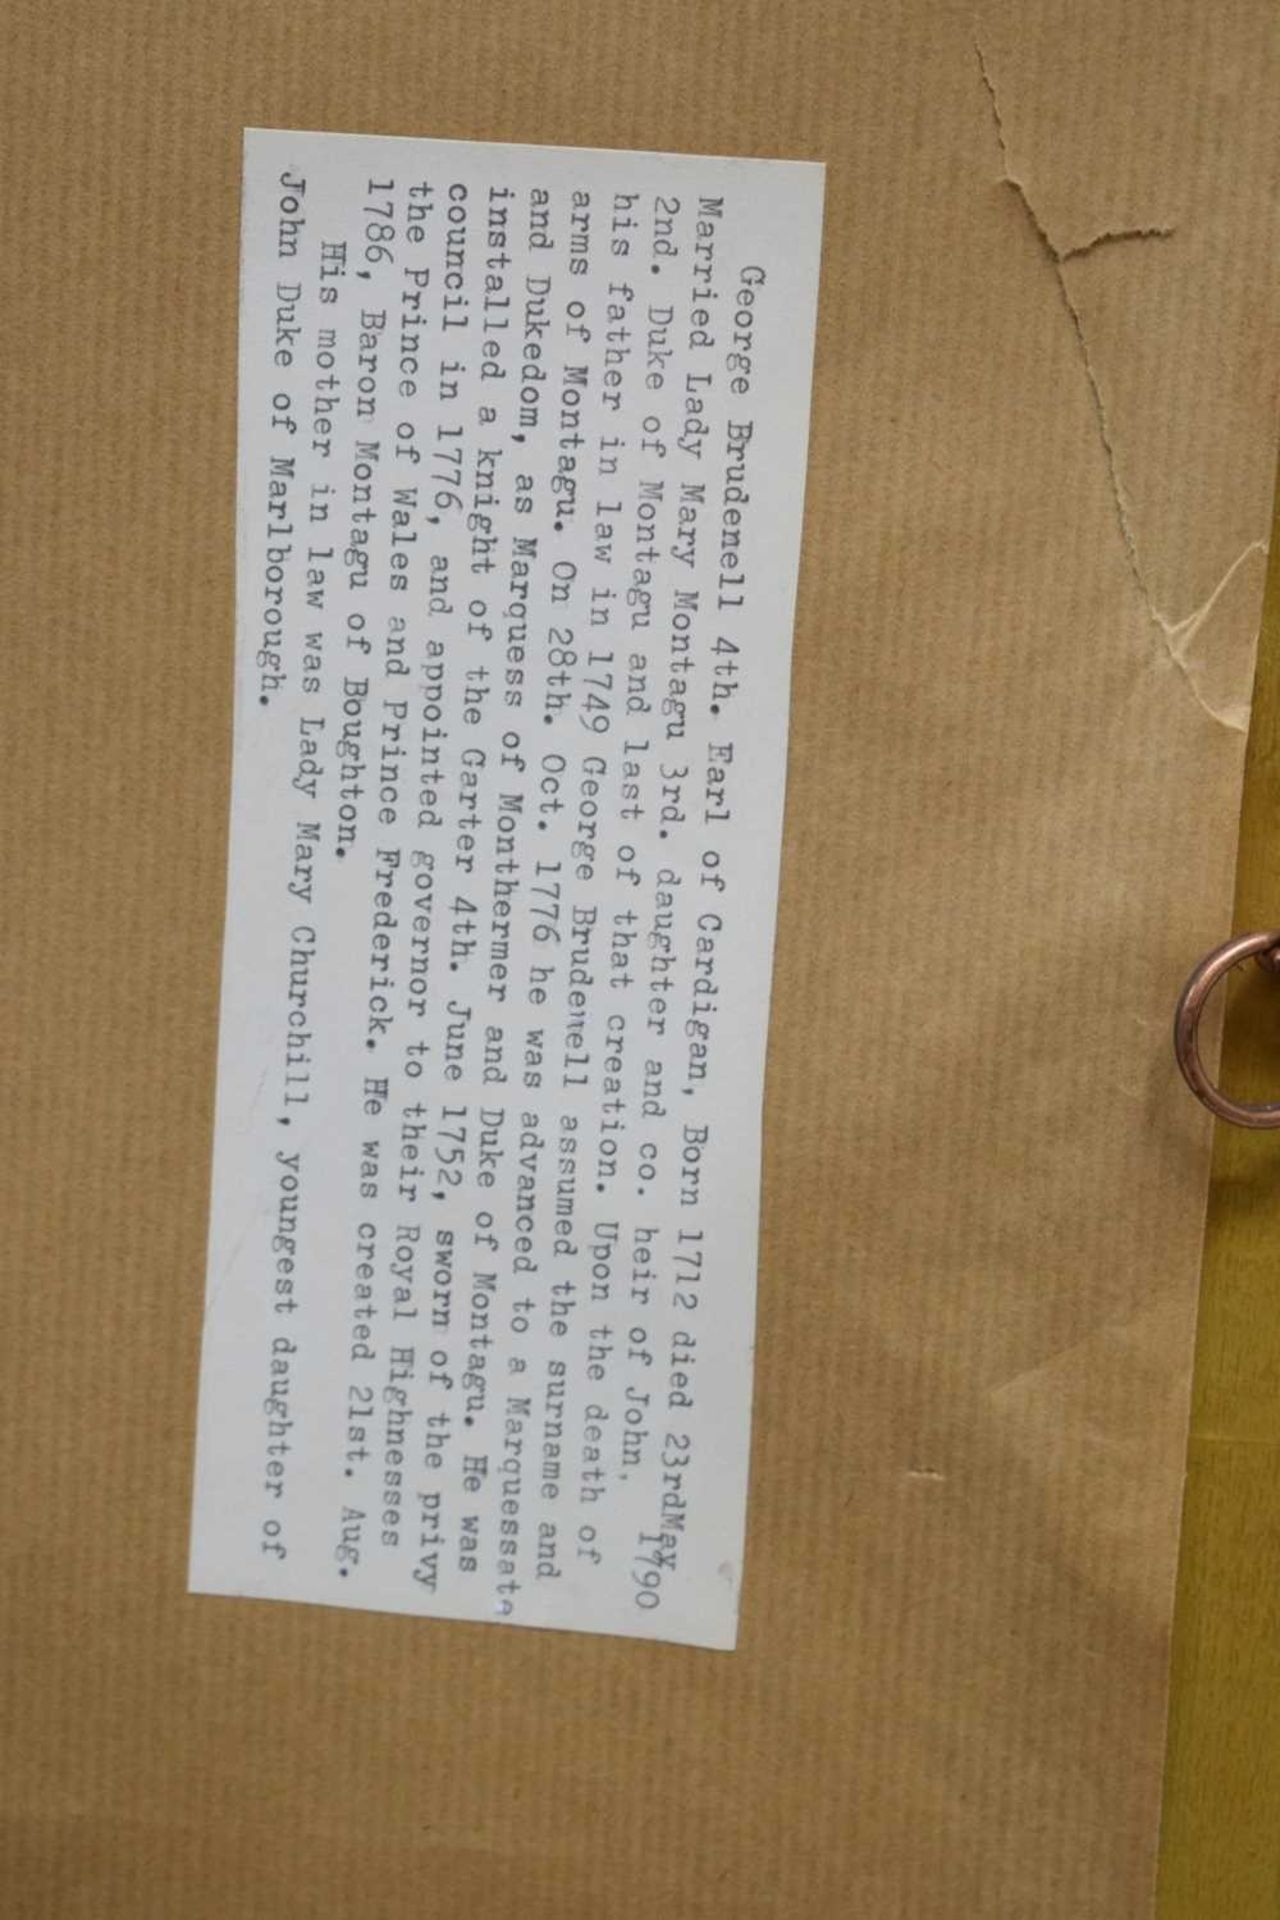 George Brudenell 4th. Earl of Cardigan, Born 1712 died 23rdMay
1790
Married Lady Mary Montagu 3rd. daughter and co. heir of John,
2nd. Duke of Montagu and last of that creation. Upon the death of
his father in law in 1749 George Brudenell assumed the surname and
arms of Montagu. On 28th. Oct. 1776 he was advanced to a Marquessate
and Dukedom, as Marquess of Monthermer and Duke of Montagu. He was
installed a knight of the Garter 4th. June 1752, sworn of the privy
council in 1776, and appointed governor to their Royal Highnesses
the Prince of Wales and Prince Frederick. He was created 21st. Aug.
1786, Baron Montagu of Boughton.
His mother in law was Lady Mary Churchill, youngest daughter of
John Duke of Marlborough.